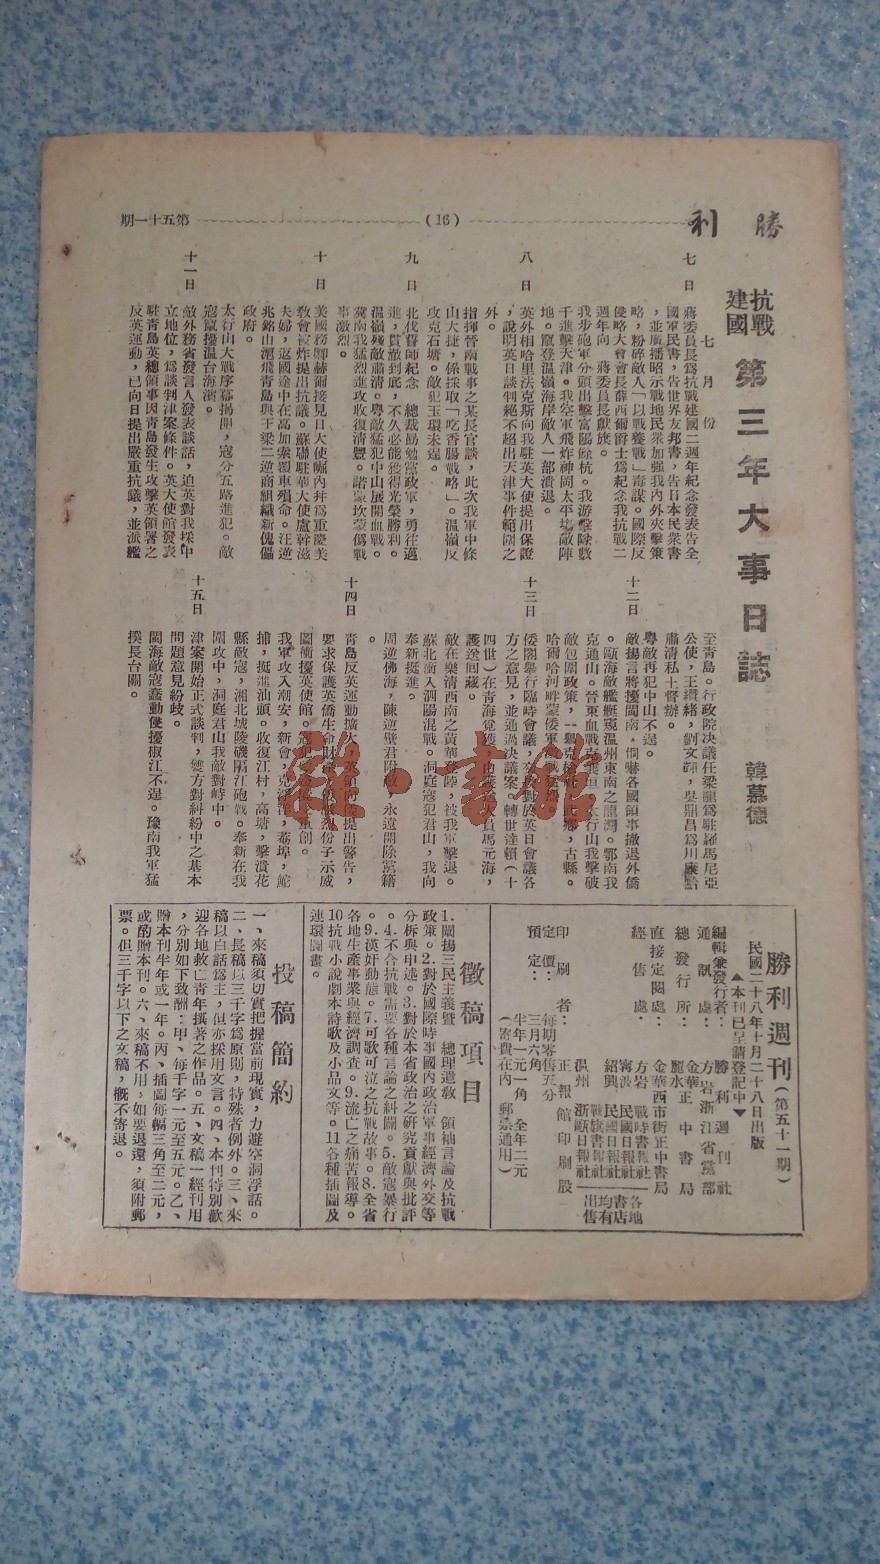 勝利
(16)
第五十一期
抗戰
建國
第三年大事日誌
韓慕德
七月份
七日
蔣委員長爲抗戰建國二週年紀念發表告全
國軍民書，告世界友邦書，告日本民衆書
，並廣播昭示戰地民衆加强我內外夾擊策
略，粉碎敵人「以戰養戰」毒謀。國際反
侵略大會會長薛西爾爵士爲紀念我抗戰二
週年向　蔣委員長獻旗。
我步砲軍分頭出擊富陽餘杭。我游擊隊數
千進擊天津。我空軍飛炸神岡太平場敵陣
地。竄登温嶺海岸敵人一部潰退。
八日
英外相哈里法克斯向我駐英大使提出保證
，說明英日談判絕不超出天津事件範圍之
外。
指揮晉南戰事之某長官談，此次我軍中條
山大捷，係採取「吃香腸戰略」。温嶺反
攻克石塘。敵犯玉環未逞。
九日
北伐誓師紀念　總裁勗勉黨政軍，勇往邁
進，貫澈到底，不久必能獲得光榮勝利。
温嶺殘敵肅清。粵敵猛犯中山展開血戰。
冀南我猛烈進攻收復清豐。諾蒙坎蒙僞戰
事激烈。
十日
美國務卿赫爾接見日大使崛內幷爲重慶美
敎會被炸提出抗議。蘇聯駐華大使盧幹滋
夫婦，返國途中在高加索覆車殞命。汪逆
兆銘由滬飛青島與王梁二逆商組織新傀儡
政府。
太行山大戰序幕揭開，寇分五路進犯。敵
寇竄擾温台海濱。
十一日
敵外務省發言人發表談話，迫英對我採中
立地位，爲談判津案條件。英大使館發表
駐青島英總領事因青島發生攻擊英領署之
反英運動，已向日提出嚴重抗議，並派艦
至青島。行政院决議任梁龍爲駐羅馬尼亞
公使，王纘緒，劉文輝，吳鼎昌爲川康黔
肅清私土督辦。
粵敵再犯中山不逞。
十二日
敵揚言將擾閩南，恫嚇各國領事撤退外僑
。甌海敵艦艇襲温州東南之龍灣。鄂南我
克通山。晉東血戰克襄垣，太行山我擊破
敵包圍政策，一舉克榆社，民鄉，古縣。
哈爾哈河畔蒙倭軍
十三日
倭閣舉行臨時會議，交換對於英日會議各
方之意見，並通過決議案。轉世達賴（十
四世）在青海覓獲，由護送大員馬元海，
護送囘藏。
敵在樂清西南之黃華登陸，被我軍擊退。
蘇北衝入泗陽混戰。洞庭寇犯君山，我向
奉新挺進。
十四日
周逆佛海，陳逆璧君附敵，永遠開除黨籍
。
青島反英運動擴大，英領向敵提出警告，
要求保護英僑生命財產。反敵激烈份子示威
圖衝擾英使館。
我軍攻入潮安，新會，克浮洋，菴埠，鮀
捕，挺進汕頭。收復江村，高塘，擊潰花
縣敵寇，湘北城陵磯隔江砲戰。奉新在我
圍攻中，洞庭君山我敵對峙中。
十五日
津案開始正式談判，雙方對糾紛中之基本
問題意見紛歧。
閩海敵寇蠢動侵擾椒江不逞。豫南我軍猛
撲長台關。
勝利週刊（第五十一期）
民國二十八年十月二十八日出版
▲本刊已呈請登記中▼
編輯兼發行者：勝利週刊社
通訊處：方岩浙江省黨部
總發行所：金華正中書局
麗水正中書局
直接定閱處：金華西市街正中書局
經售處：方岩戰時書報社
寗波民國日報社
紹興民國日報社
戰旗書報社
温州浙甌日報社
各地書店均有出售
印刷者：正報館印刷股
定價：每期零售五分
預定：三月六角
半年一元一角　全年二元
（寄費在內　郵票通用）
徵稿項目
1.闡揚三民主義暨　總理遺敎　領袖言論及抗戰
政策。2.對於國際時事國內政治軍事經濟外交等
分析與申述。3.對於本省政治之研究貢獻與批評
。4.不合抗戰需要各種言論之糾闢。5.敵寇暴行
。9.漢奸動態。7.可歌可泣之抗戰故事。8.全省
各地生產事業與經濟調查。9.流亡之痛苦報導。
10抗戰小說劇本詩歌及小品文等。11各種插圖及
連環圖畫。
投稿簡約
一、來稿須切實把握當前現實，力避空洞浮話。
二、長稿以三千字爲原則，特殊者例外。三、來
稿以白話爲主，但亦採用文言。四、本刊特別歡
迎各地救亡青年撰著之作品。五、文稿一經刊用
，分別如下致酬：甲、每千字一元至五元。乙、
贈本刊半年或一年。丙、插圖每幅三角至二元，
或酌贈本刊。六、來稿不用，如要退還，須附郵
票。但三千字以下之文稿，概不寄退。